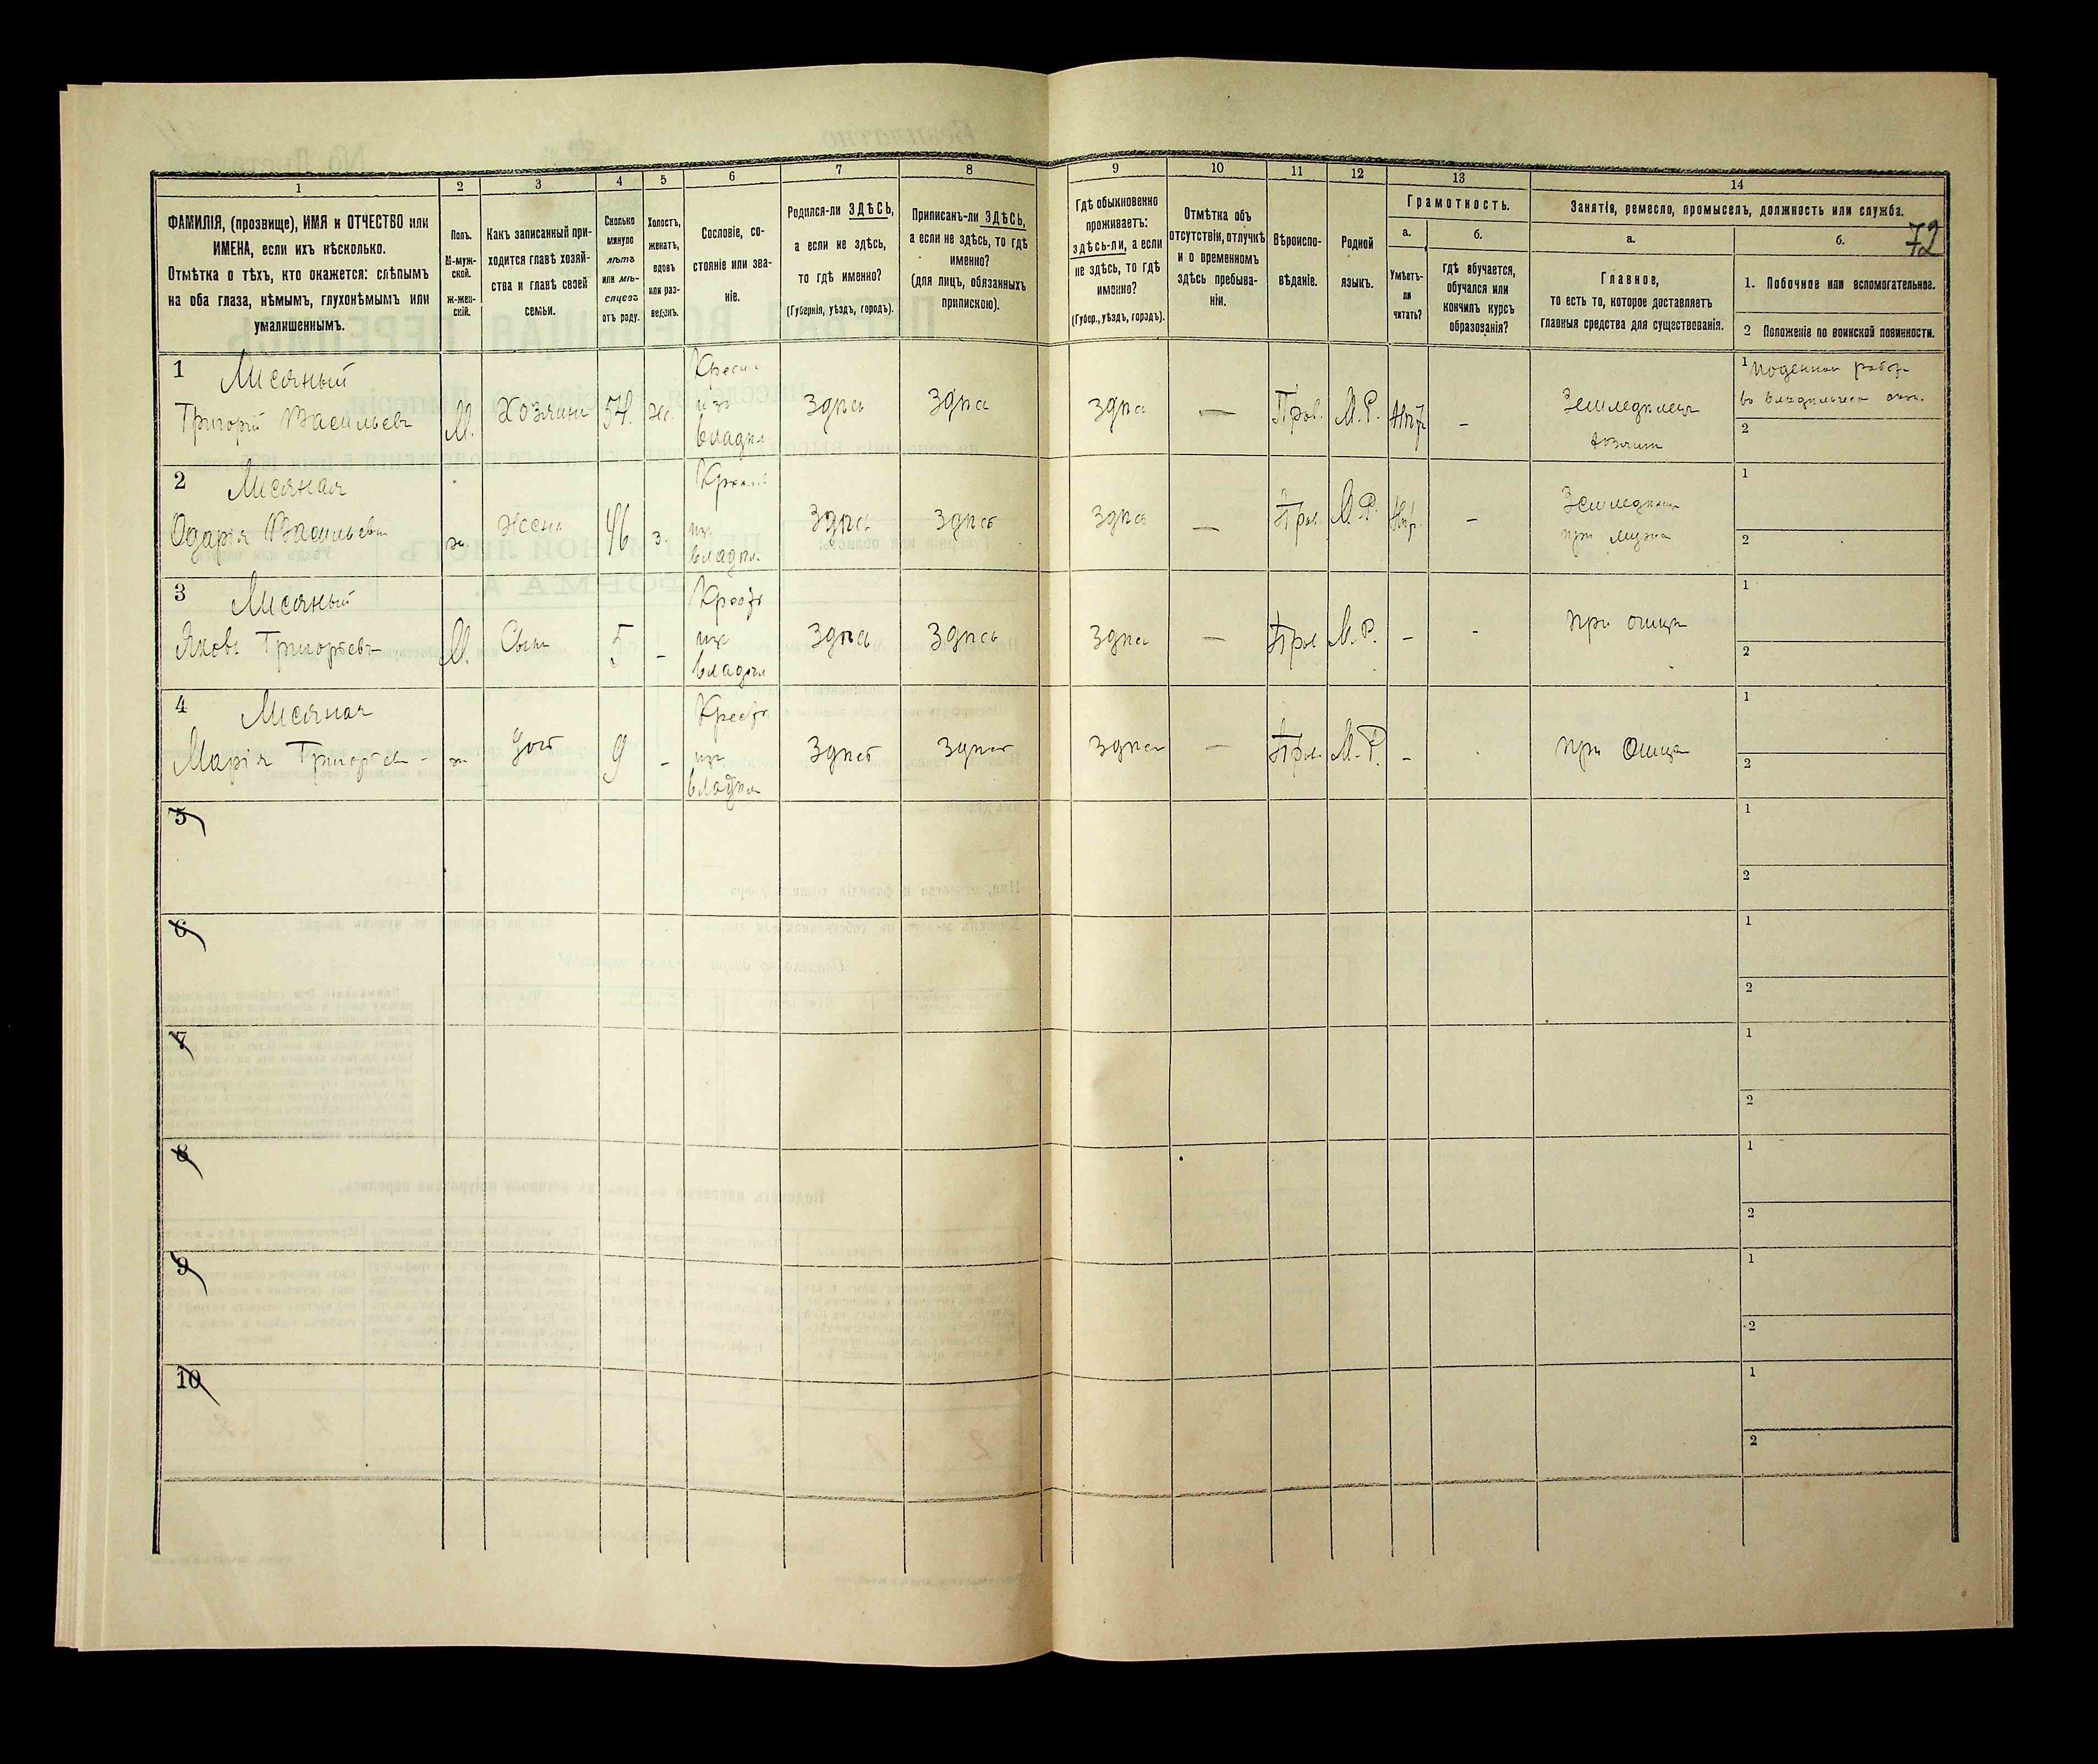 72
1 2 3 4 5 6 7 8 9 10 11 12 13 14
ФАМИЛІЯ, (прозвище), ИМЯ и ОТЧЕСТВО или
ИМЕНА, если ихъ нѣсколько.
Отмѣтка о тѣхъ, кто окажется: слѣпымъ
на оба глаза, нѣмымъ, глухонѣмымъ или
умалишеннымъ.
Полъ.
М-муж-
ской.
ж-жен-
скій.
Какъ записанный при-
ходится главѣ хозяй-
ства и главѣ своей
семьи.
Сколько
минуло
лѣтъ
или мѣ-
сяцевъ
отъ роду.
Холостъ,
женатъ,
вдовъ
или раз-
веденъ.
Сословіе, со-
стояніе или зва-
ніе.
Родился-ли ЗДѢСЬ,
а если не здѣсь,
то гдѣ именно?
(Губернія, уѣздъ, городъ).
Приписанъ-ли ЗДѢСЬ,
а если не здѣсь, то гдѣ
именно?
(для лицъ, обязанныхъ
припискою).
Гдѣ обыкновенно
проживаетъ:
здѣсь-ли, а если
не здѣсь, то гдѣ
именно?
(Губер., уѣздъ, городъ).
Отмѣтка объ
отсутствіи, отлучкѣ
и о временномъ
здѣсь пребыва-
ніи.
Вѣроиспо-
вѣданіе.
Родной
языкъ.
Грамотность.
а.
Умѣетъ-
ли
читать?
б.
гдѣ обучается,
обучался или
кончилъ курсъ
образованія?
Занятіе, ремесло, промыселъ, должность или служба.
а.
Главное,
то есть то, которое доставляетъ
главныя средства для существованія.
б.
1. Побочное или вспомогательное.
2 Положеніе по воинской повинности.
1 Мисяный
Григорій Васильевъ М. Хозяинъ 54. Ж. из владѣл Здѣсь Здѣсь Здѣсь — Прав. М.Р. Нѣт - Земледѣлецъ
хозяинъ
1 Поденная
2
2 Мисяная
Одарія Васильевна ж. Жена 46 з. из владѣл. Здѣсь Здѣсь Здѣсь — Прав. М.Р. Нѣт - при мужѣ
1
2
3 Мисяный
Яковъ Григорьевъ М. Сынъ 5 - Крест из владѣл Здѣсь Здѣсь Здѣсь — Прав М.Р. - - при отцѣ
1
2
4 Мисяная
Марія Григорьев ж. дочь 9 - Крест из владѣл Здѣсь Здѣсь Здѣсь — Прав. М.Р. - при отцѣ
1
2
5
1
2
6
1
2
7
1
2
8
1
2
9
1
2
10
1
2